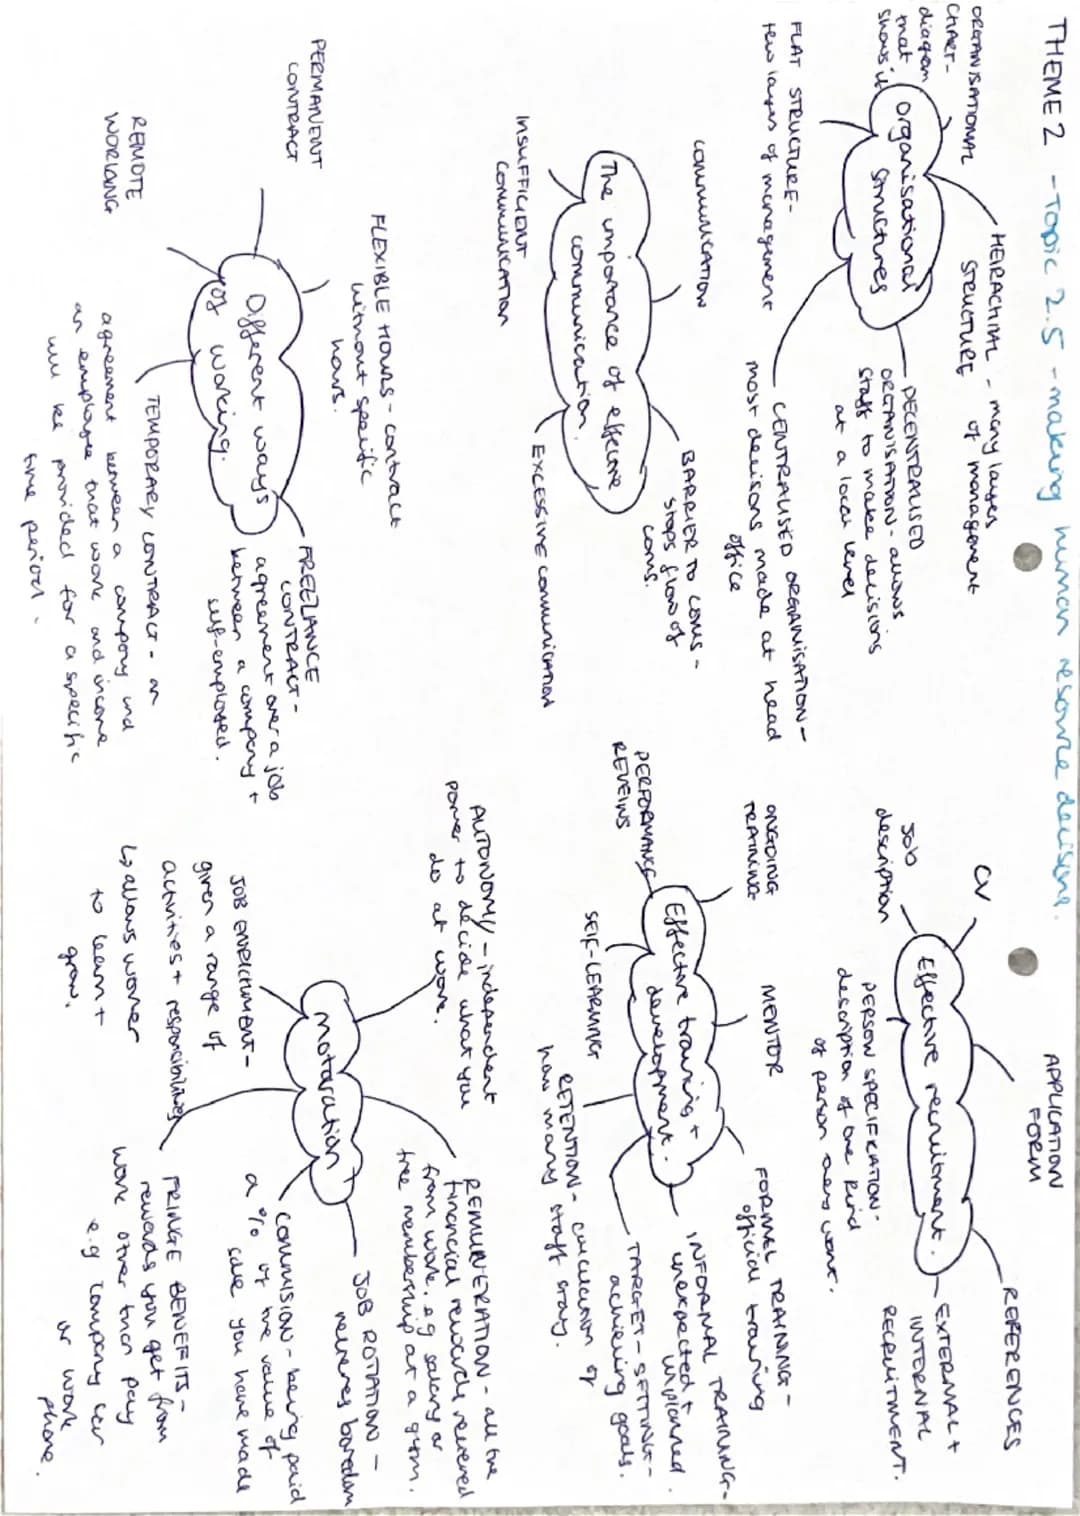 THEME 2 - Topic 2.5 - making human resource decisions.
ORGANISATIONAL
CHART-
diagram
that
shows it
Organisational
structures
HEIRACHIAL - many layers
STRUCTURE of management
DECENTRALISED
ORGANISATION - allows
staff to make decisions
at a local level
CENTRALISED ORGANISATION -
most decisons made at head
office
FLAT STRUCTURE -
few layers of management
The importance of effective
communication.
COMMUNICATION
BARRIER TO COMS -
stops flow of
coms.
INSUFFICIENT
COMMUNICATION
EXCESSIVE COMMUNICATION
Different ways
of working.
PERMANENT
CONTRACT
FLEXIBLE HOURS - contract
without specific
hours.
FREELANCE
CONTRACT -
agreement over a job
between a company +
self-employed.
REMOTE
WORKING
TEMPORARY CONTRACT - an
agreement between a company and
an employee that work and income
will be provided for a specific
time period.
Effective recruitment.
Job
description
CV
APPLICATION
FORM
REFERENCES
EXTERNAL +
INTERNAL
RECRUITMENT.
PERSON SPECIFICATION -
description of the kind
of person ones want.
Effective training +
development.
ONGOING
TRAINING
MENTOR
FORMEL TRAINING -
official training
INFORMAL TRAINING -
unexpected +
unplanned.
TARGET - SETTING -
achieving goals.
PERFORMANCE
REVEIWS
SELF-LEARNING
RETENTION - calculation of
how many staff stay.
motavation
AUTONOMY - independent
power to decide what you
do at work.
REMUNERATION - all the
financial rewards received
from work. e.g salary or
free membership at a gym.
JOB ROTATION -
relieves boredom
COMMISION - being paid
a % of the value of
sale you have made
JOB ENRICHMENT -
given a range of
activities + responsibilities
↳ allows worker
to learn +
grow.
FRINGE BENEFITS -
rewards you get from
work other than pay
e.g company car
or work
phone.